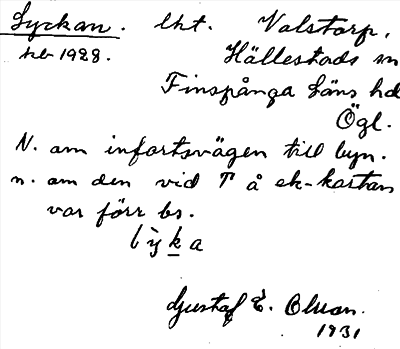 Lyckan. lht. Valstorp,
hbr 1928. Hällestads sn
Finspånga läns hd
Ögl.
N. om infartsvägen till byn.
n. om den vid T å ek-kartan
var förr bs.
lỳka
Gustaf E. Olson.
1931